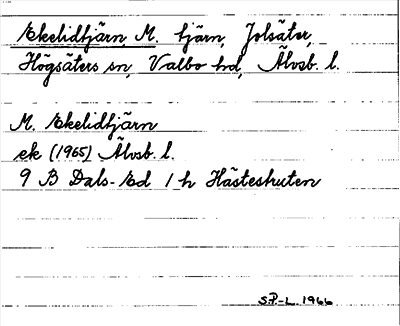 Ekelidtjärn, M. tjärn, Jolsäter,
Högsäters sn, Valbo hd, Älvsb. l.
M. Ekelidtjärn
ek (1965) Älvsb. l.
9 B Dals-Ed 1 h Hästeshuten
S.P.-L. 1966